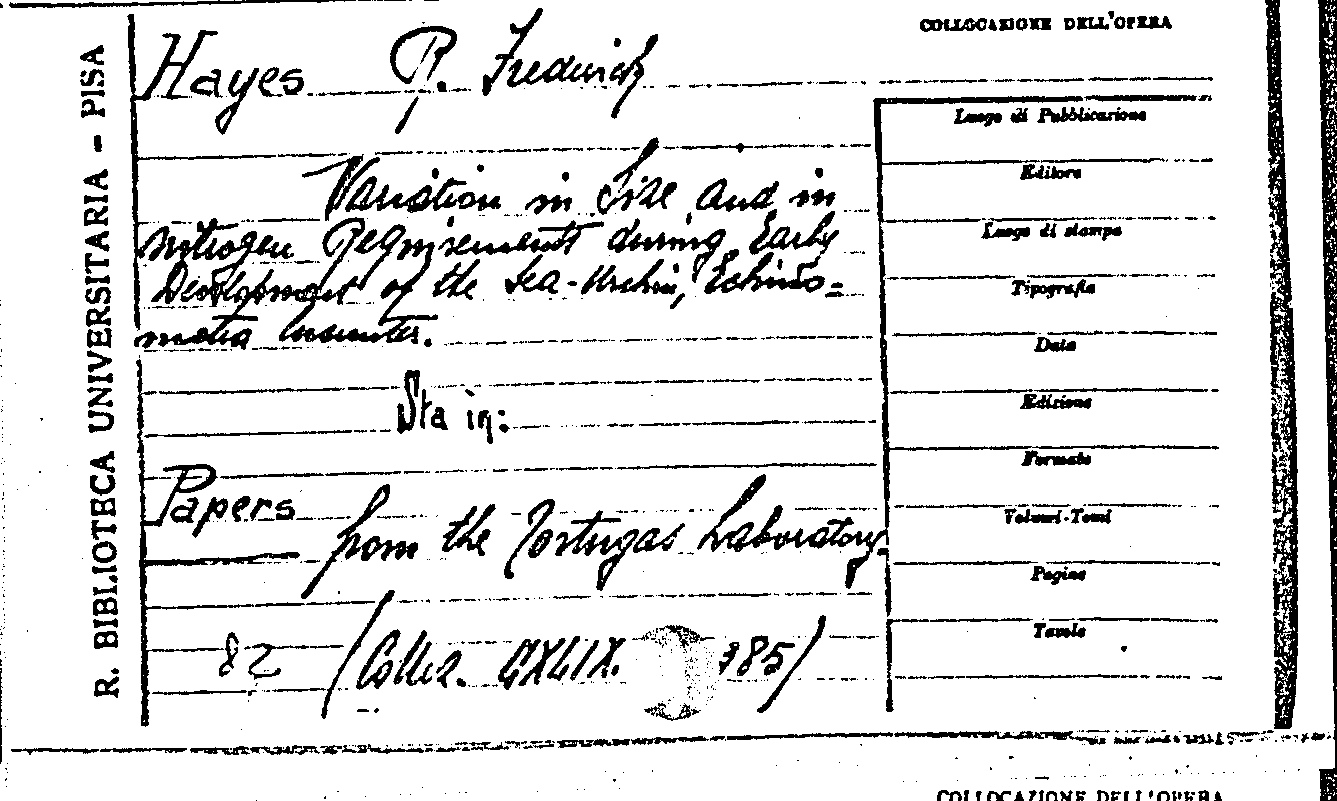 R. BIBLIOTECA UNIVERSITARIA - PISA
COLLOCAZIONE DELL'OPERA
Hayes R. Frederick
Variation in Size and in
nitrogen Requirements during Early
Development of the Sea-Urchin, Echino=
metra
Sta in:
Papers
from the Tortugas Laboratory.
82 (Collez. 385)
Luogo di Pubblicazione
Editore
Luogo di stampa
Tipografia
Data
Edizione
Formato
Volumi-Tomi
Pagine
Tavole
COLLOCAZIONE DELL'OPERA